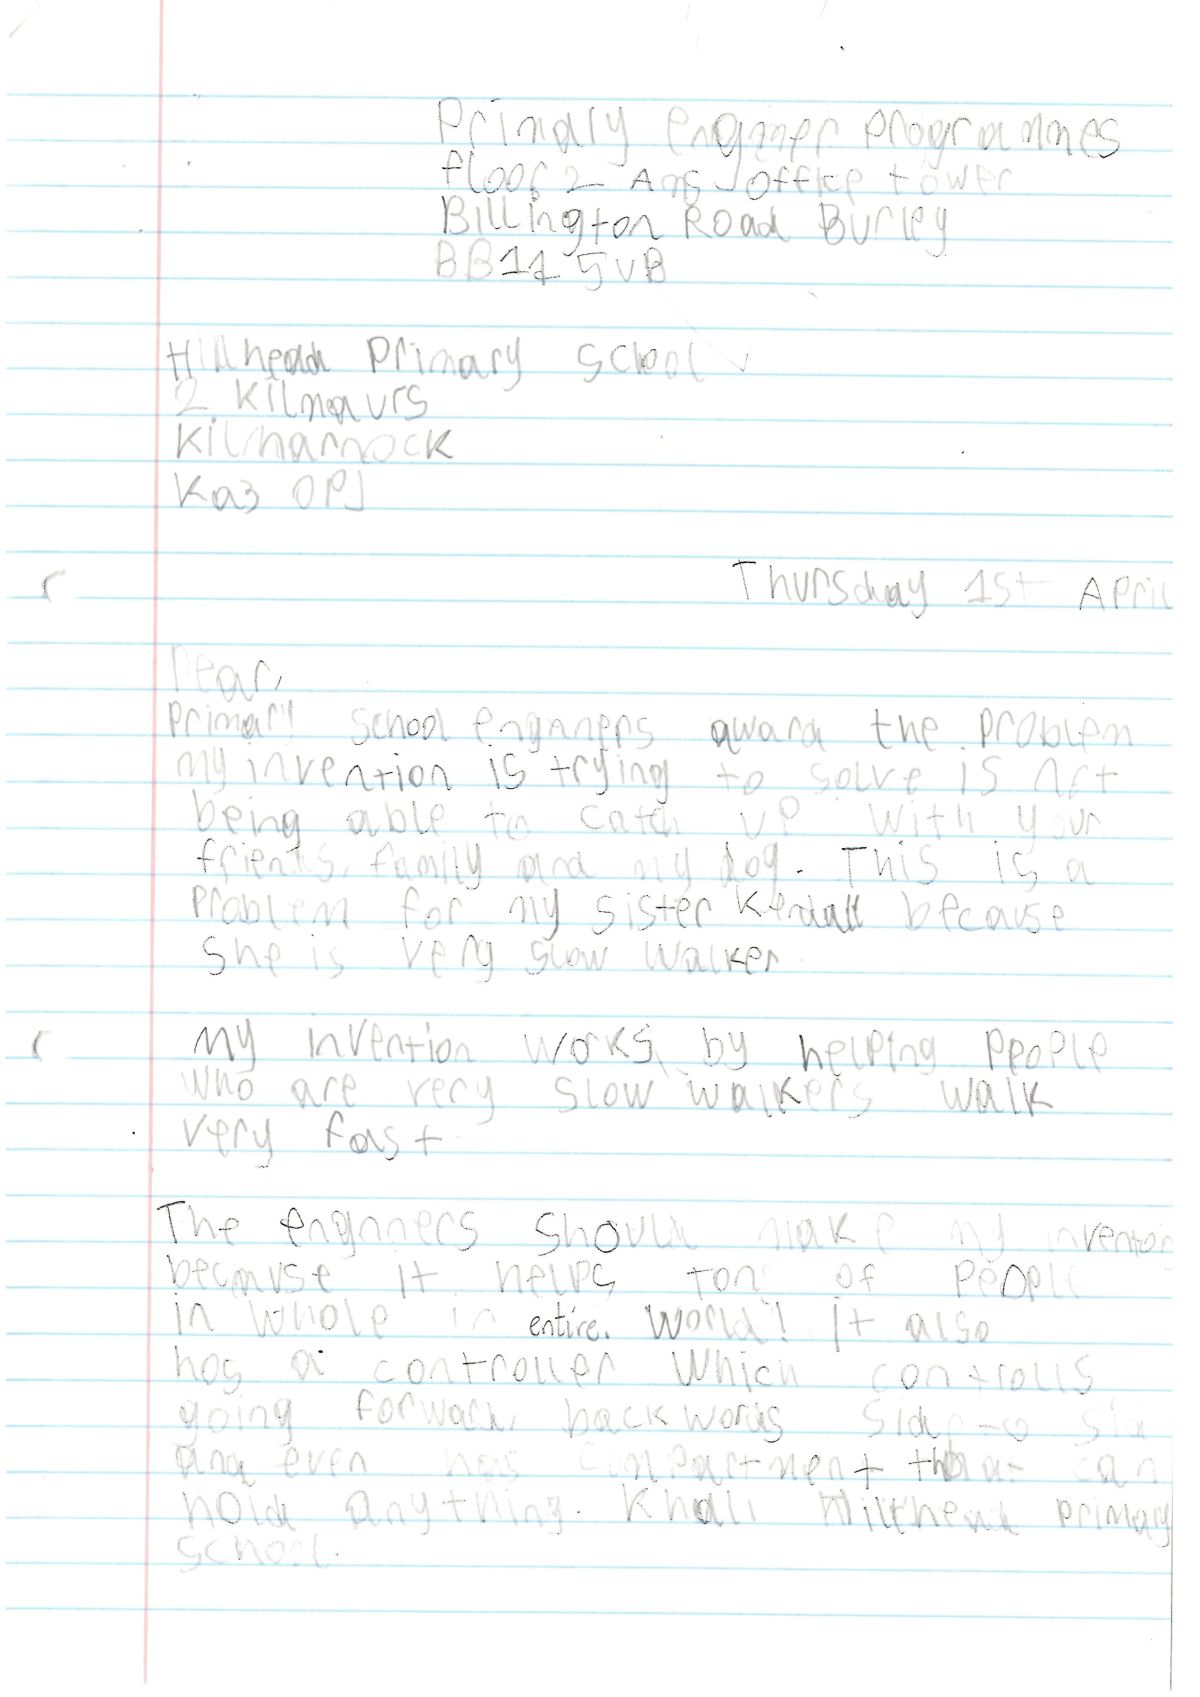 Primary engnner programmes
floor 2 Ans office tower
Billington Road Burley
BB11 5UB
Hillhead primary school
2 Kilmaurs
Kilmarnock
Ka3 0PJ
Thursday 1st April
Dear,
primary school engnners award the problem
my invention is trying to solve is not
being able to catch up with your
friends, family and my dog. This is a
problem for my sister Kendall because
she is very slow walker
My invention works by helping people
who are very slow walkers walk
very fast
The engnners should make my invention
because it helps tons of people
in whole in entire. world! It also
has a controller which controlls
going forward, backwords side to
and even has compartment that can
hold anything. Hillhead primary
school.